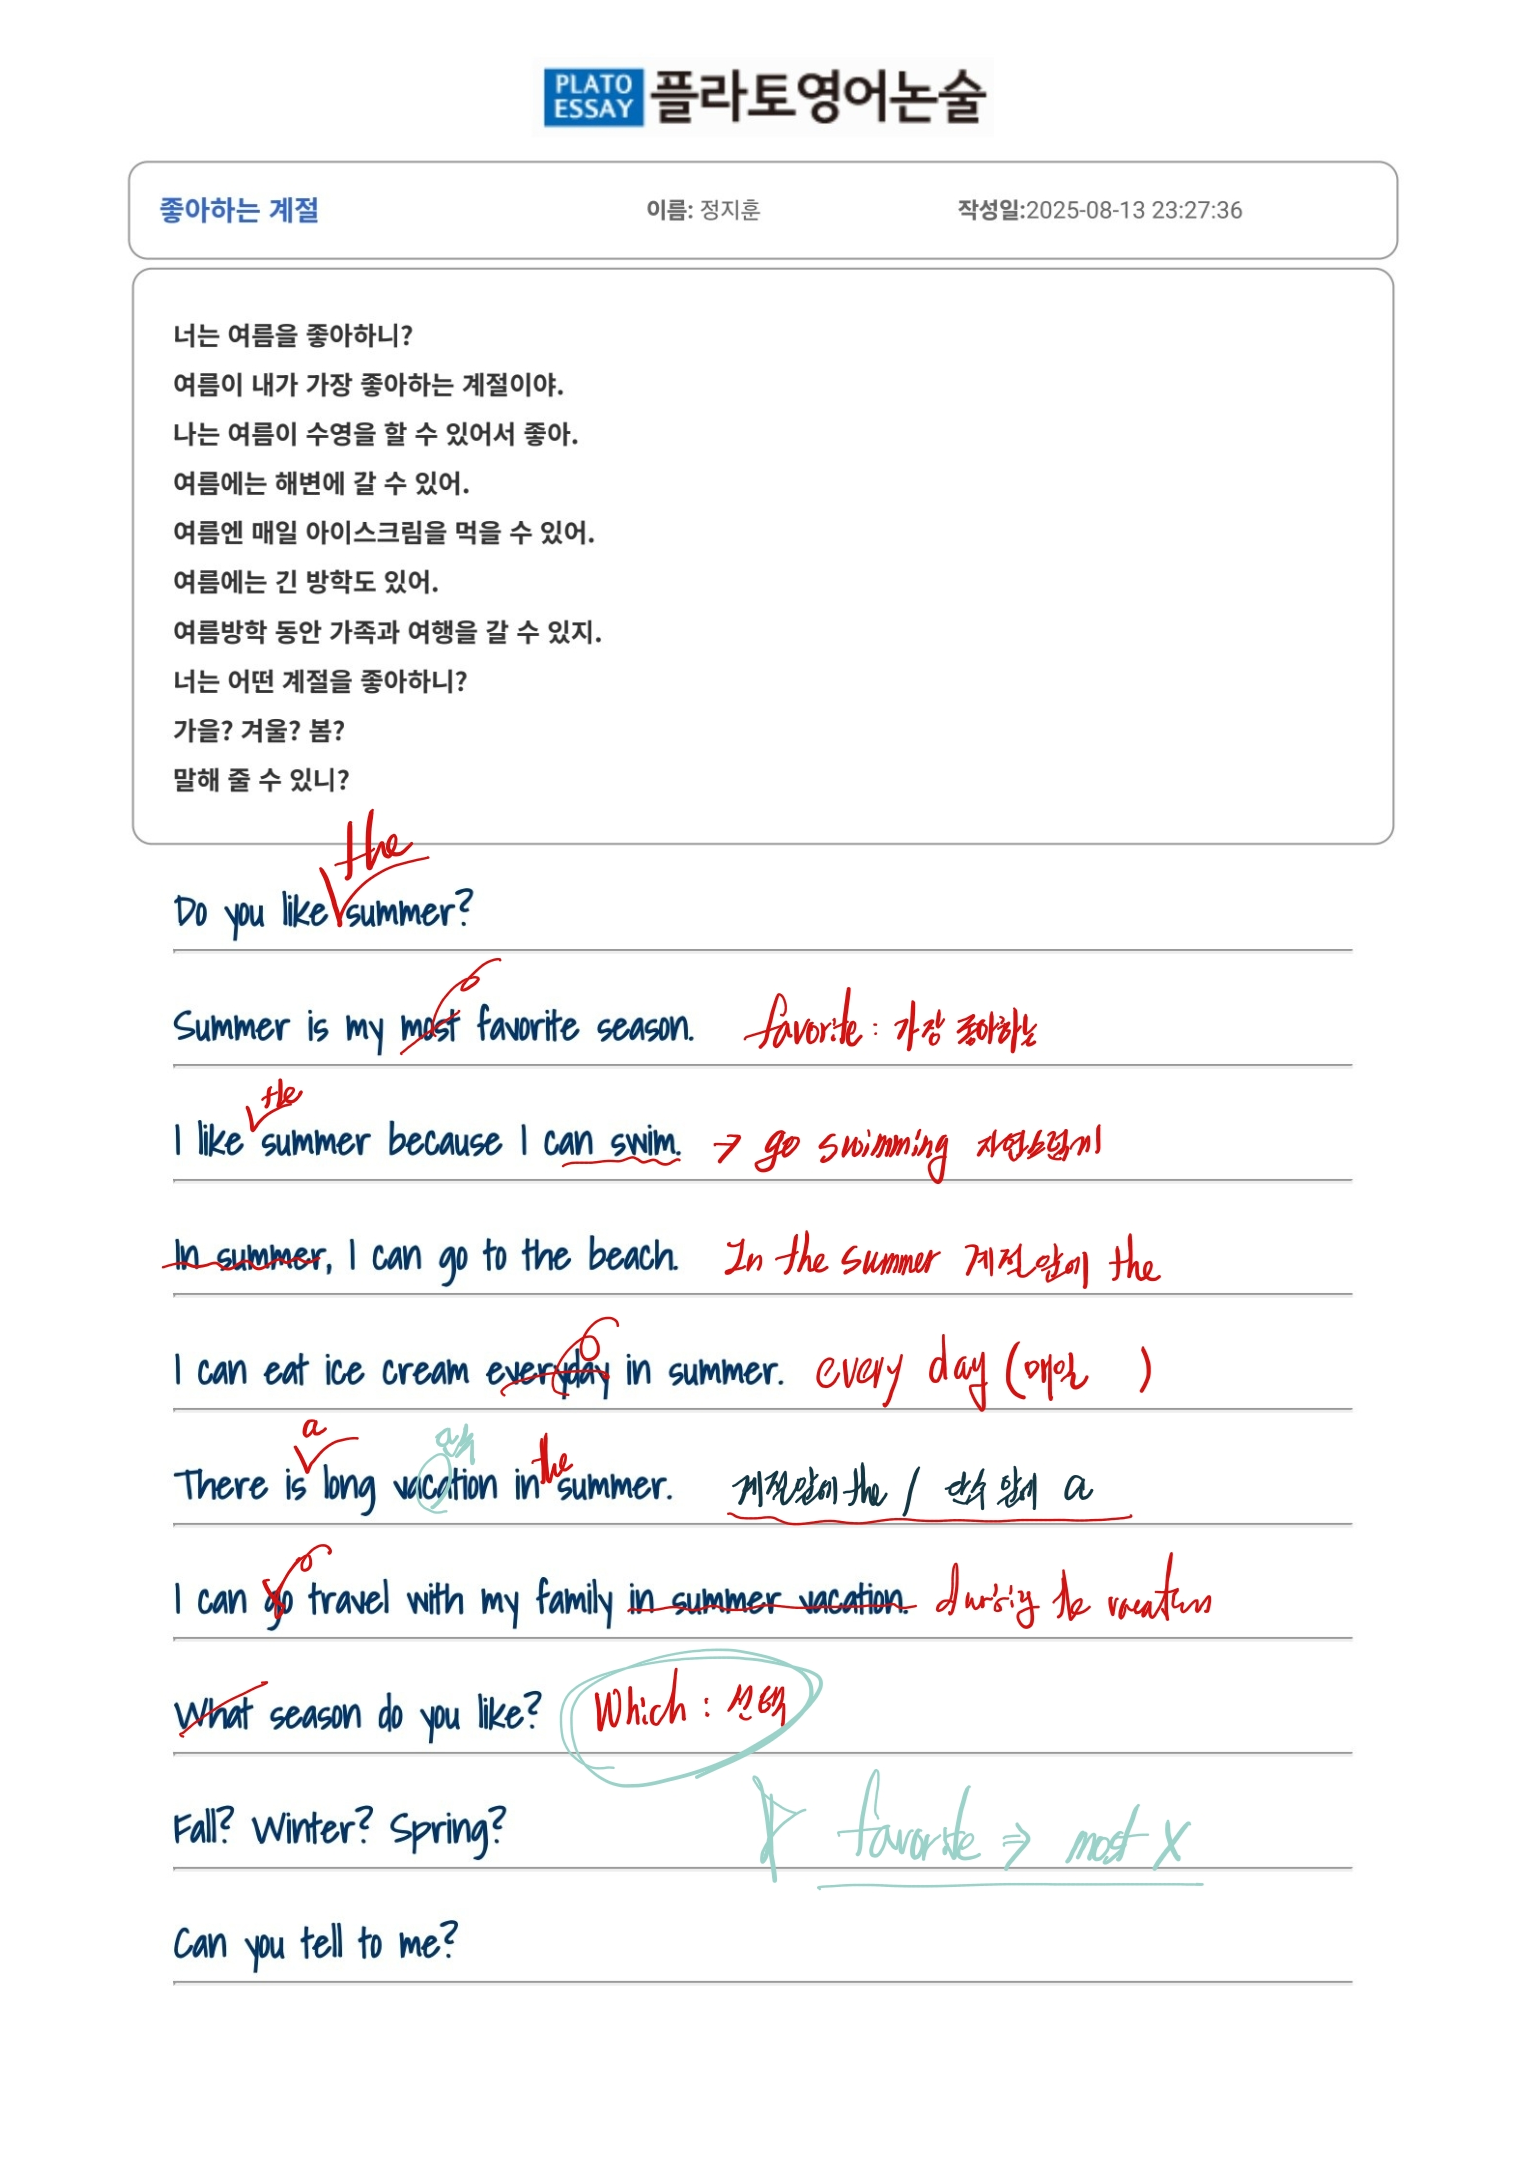 PLATO ESSAY 플라토영어논술
좋아하는 계절 이름: 정지훈 작성일:2025-08-13 23:27:36
너는 여름을 좋아하니?
여름이 내가 가장 좋아하는 계절이야.
나는 여름이 수영을 할 수 있어서 좋아.
여름에는 해변에 갈 수 있어.
여름엔 매일 아이스크림을 먹을 수 있어.
여름에는 긴 방학도 있어.
여름방학 동안 가족과 여행을 갈 수 있지.
너는 어떤 계절을 좋아하니?
가을? 겨울? 봄?
말해 줄 수 있니?
the
Do you like summer?
Summer is my most favorite season. favorite : 가장 좋아하는
the
I like summer because I can swim. → go swimming 자연스럽게
In summer, I can go to the beach. In the summer 계절앞에 the
I can eat ice cream everyday in summer. every day (매일 )
a
There is long vacation in the summer. 계절앞에 the / 단수 앞에 a
I can go travel with my family in summer vacation. during the vacation
What season do you like? Which : 선택
Fall? Winter? Spring? favorite ⇒ most X
Can you tell to me?